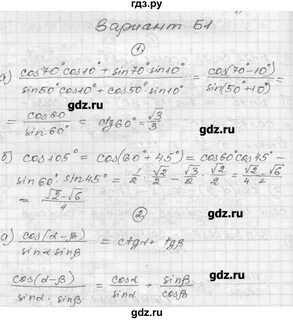 Вариант Б1
1
а) (cos70°cos10° + sin70°sin10°)/(sin50°cos10° + cos50°sin10°) = cos(70°-10°)/sin(50°+10°) =
= cos60°/sin60° = ctg60° = √3/3
б) cos105° = cos(60°+45°) = cos60°cos45° -
sin60° sin45° = 1/2 · √2/2 - √3/2 · √2/2 = √2/4 - √6/4
= (√2-√6)/4
2
а) cos(α-β)/(sinα sinβ) = ctgα + tgβ
cos(α-β)/(sinα · sinβ) = cosα/sinα + sinβ/cosβ
гдз.ру